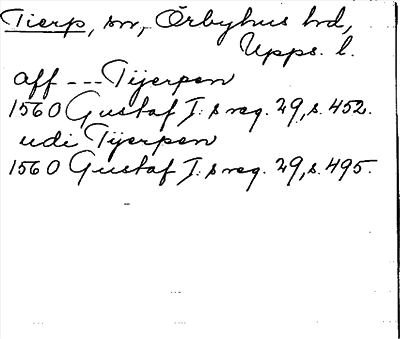 Tierp, sn, Örbyhus hd,
Upps. l.
aff --- Tijerpen
1560 Gustaf I:s reg. 29, s. 452.
udi Tijerpen
1560 Gustaf I:s reg. 29, s. 495.